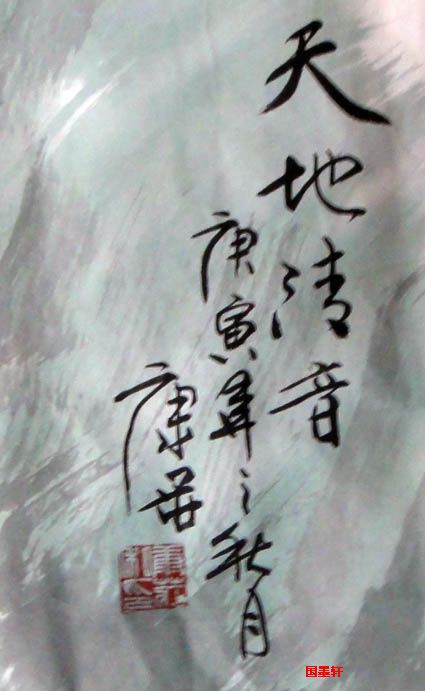 天地清音
庚寅年之秋月
康芸
国墨轩